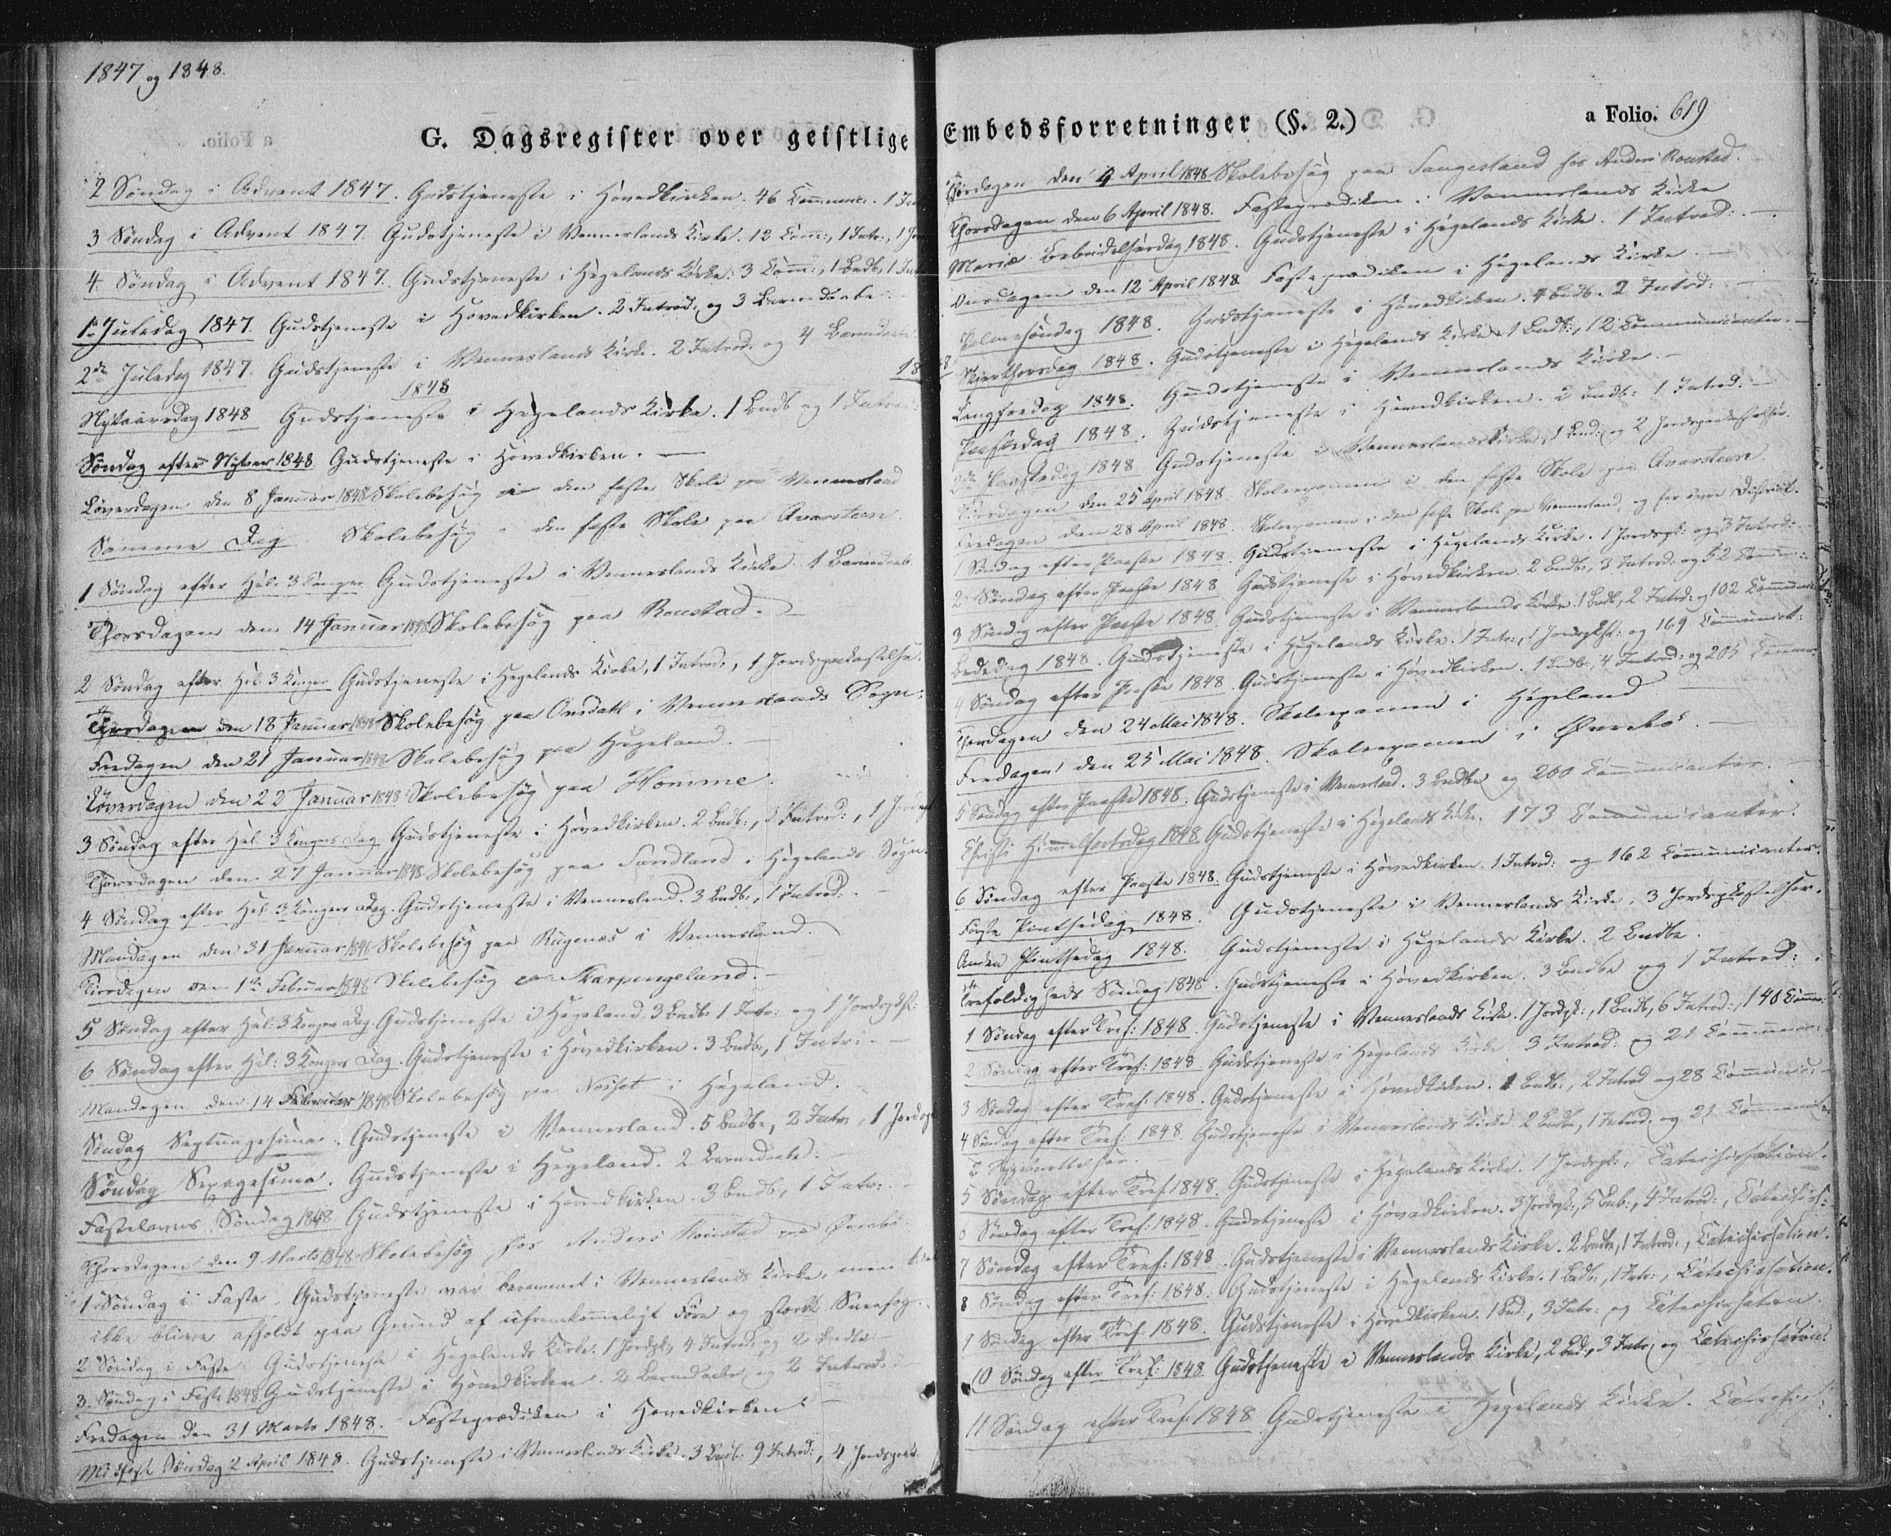 1847 og 1848.
G. Dagsregister over geistlige
2 Søndag i Advent 1847. Gudstjeneste i Hovedkirken. 46 Commun. 1
3 Søndag i Advent 1847. Gudstjeneste i Vennerslands Kirke. 12 Comm:, 1 Intr:, 1
4 Søndag i Advent 1847. Gudstjeneste i Hegelands Kirke. 3 Comm:, 1 Bndb, 1
1ste Juledag 1847. Gudstjeneste i Hovedkirken. 2 Introd: og 3 Barnedaabe.
2den Juledag 1847. Gudstjeneste i Vennerslands Kirke. 2 Introd: og 4 Barnedaabe
1848
Nytaarsdag 1848 Gudstjeneste i Hegelands Kirke. 1 Bndb og 1 Introd:
Søndag efter Nytaar 1848 Gudstjeneste i Hovedkirken. —
Løverdagen den 8 Januar 1848 Skolebesøg i den faste Skole paa Vennersland
Samme Dag Skolebesøg i den faste Skole paa Avarsteen
1 Søndag efter Hel: 3 Konger Gudstjeneste i Vennerslands Kirke 1 Barnedaab
Thorsdagen den 14 Januar 1848 Skolebesøg paa Ronstad. —
2 Søndag efter Hel: 3 Konger Gudstjeneste i Hegelands Kirke, 1 Introd:, 1 Jordspaakastelse.
den 18 Januar 1848 Skolebesøg paa Omdahl i Vennerslands Sogn.
Fredagen den 21 Januar 1848 Skolebesøg paa Hegeland. —
Løverdagen den 22 Januar 1848 Skolebesøg paa Homme.
3 Søndag efter Hel: 3 Kongers Dag Gudstjeneste i Hovedkirken. 2 Bndb:, 3 Introd:, 1
Thorsdagen den 27 Januar 1848 Skolebesøg paa Sandland i Hegelands Sogn.
4 Søndag efter Hel: 3 Kongers Dag. Gudstjeneste i Vennersland. 3 Bndb:, 1 Introd. —
Mandagen den 31 Januar 1848 Skolebesøg paa Rugenæs i Vennersland.
Tirsdagen den 1ste Februar 1848 Skolebesøg paa Skarpengeland. —
5 Søndag efter Hel: 3 Kongers Dag. Gudstjeneste i Hegeland. 3 Bndb: 1 Intr: og 1 Jordspkst.
6 Søndag efter Hel: 3 Kongers Dag. Gudstjeneste i Hovedkirken. 3 Bndb:, 1 Intr: —
Mandagen den 14 Februar 1848 Skolebesøg paa i Hegeland.
Søndag Septuagesima. Gudstjeneste i Vennersland. 5 Bndbe, 2 Intr:, 1
Søndag Sexagesima. Gudstjeneste i Hegeland. 2 Barnedaabe: —
Fastelavns Søndag 1848 Gudstjeneste i Hovedkirken. 3 Bndb:, 1 Intr: —
Thorsdagen den 9 Marts 1848 Skolebesøg hos Anders Ronstad paa Øvrebø.
1 Søndag i Faste. Gudstjeneste var berammet i Vennerslands Kirke, men
ikke bleven afholdt paa Grund af ufremkommeligt Føre og stærkt Sneefog.
2 Søndag i Faste. Gudstjeneste i Hegelands Kirke. 1 Jordspk, 4 Introd: og 2 Bndbe —
3. Søndag i Faste 1848 Gudstjeneste i Hovedkirken. 2 Barnedaabe og 2 Introd: —
Fredagen den 31 Marts 1848. Fasteprædiken i Hovedkirken. —
Midfaste Søndag 2 April 1848. Gudstjeneste i Vennerslands Kirke. 3 Bndb: 9 Introd:, 4
Embedsforretninger (§. 2.)
a Folio. 619
den 4 April 1848 Skolebesøg paa hos Anders Ronstad.
Thorsdagen den 6 April 1848. Fasteprædiken i Vennerslands Kirke
Mariæ Bebudelsesdag 1848. Gudstjeneste i Hegelands Kirke. 1 Introd: —
Onsdagen den 12 April 1848 Fasteprædiken i Hegelands Kirke. —
Palmesøndag 1848. Gudstjeneste i Hovedkirken. 4 Bndb. 2 Introd: —
Skjærthorsdag 1848. Gudstjeneste i Hegelands Kirke. 1 Bndb:, 12 Communicanter.
Langfredag 1848. Gudstjeneste i Vennerslands Kirke. —
Paaskedag 1848. Gudstjeneste i Hovedkirken. 2 Bndb: 1 Introd: —
2den Paaskedag 1848 Gudstjeneste i Vennerslands Kirke, 1 Bnd: og 2 Jordspaakastelser.
Tirsdagen den 25 April 1848. Skoleexamen i den faste Skole paa Avarsteen.
Fredagen den 28 April 1848. Skoleexamen i den faste Skole paa Vennersland og for District.
1 Søndag efter Paaske 1848. Gudstjeneste i Hegelands Kirke. 1 Jordspk: og 3 Introd:
2 Søndag efter Paaske 1848 Gudstjeneste i Hovedkirken. 2 Bndb:, 3 Introd: og 52 Commun:
3 Søndag efter Paaske 1848. Gudstjeneste i Vennerslands Kirke. 1 Bndb, 2 Introd: og 102 Communic
Bededag 1848. Gudstjeneste i Hegelands Kirke. 1 Intr:, 1 Jordspkst: og 169 Communict:
4 Søndag efter Paaske 1848. Gudstjeneste i Hovedkirken. 1 Bndb:, 4 Introd: og 205 Commun.
den 24 Mai 1848. Skoleexamen i Hegeland
Fredagen den 25 Mai 1848. Skoleexamen i Øvrebø. —
5 Søndag efter Paaske 1848. Gudstjeneste i Vennersland. 3 Bndbe og 260 Communicanter. —
Christi Himmelfartsdag 1848. Gudstjeneste i Hegelands Kirke. 173 Communicanter.
6 Søndag efter Paaske 1848. Gudstjeneste i Hovedkirken. 1 Introd: og 162 Communicanter.
Første Pintsedag 1848. Gudstjeneste i Vennerslands Kirke. 3 Jordspkastelser.
Anden Pintsedag 1848. Gudstjeneste i Hegelands Kirke. 2 Bndbe.
Trefoldigheds Søndag 1848. Gudstjeneste i Hovedkirken. 3 Bndbe og 1 Introd:
1 Søndag efter Tref: 1848. Gudstjeneste i Vennerslands Kirke. 1 Jordspk:, 1 Bndb, 6 Introd:, 140 Commun:
2 Søndag efter Tref: 1848 Gudstjeneste i Hegelands Kirke. 3 Introd: og 21 Commun:
3 Søndag efter Tref: 1848. Gudstjeneste i Hovedkirken. 1 Bndb:, 2 Introd og 28 Communic.
4 Søndag efter Tref: 1848 Gudstjeneste i Vennerslands Kirke. 2 Bndbe, 1 Introd. og 21 Communic
5 Søndag efter Tref 1848. Gudstjeneste i Hegelands Kirke. 1 Jordspk:, Catechisation.
6 Søndag efter Tref: 1848. Gudstjeneste i Hovedkirken. 3 Jordspk:, 5 Bnb:, 4 Introd:, Catechis:
7 Søndag efter Tref: 1848. Gudstjeneste i Vennerslands Kirke. 2 Bndbe, 1 Introd:, Catechisation.
8 Søndag efter Tref: 1848. Gudstjeneste i Hegelands Kirke. 1 Bndb:, 1 Intr:, Catechisation.
9 Søndag efter Tref: 1848. Gudstjeneste i Hovedkirken. 1 Bnd:, 3 Intr: og Catechisation.
10 Søndag efter Tref: 1848 Gudstjeneste i Vennerslands Kirke, 2 Bnd:, 3 Intr: og Catechisation.
11 Søndag efter Tref: 1848. Gudstjeneste i Hegelands Kirke. Catechis: